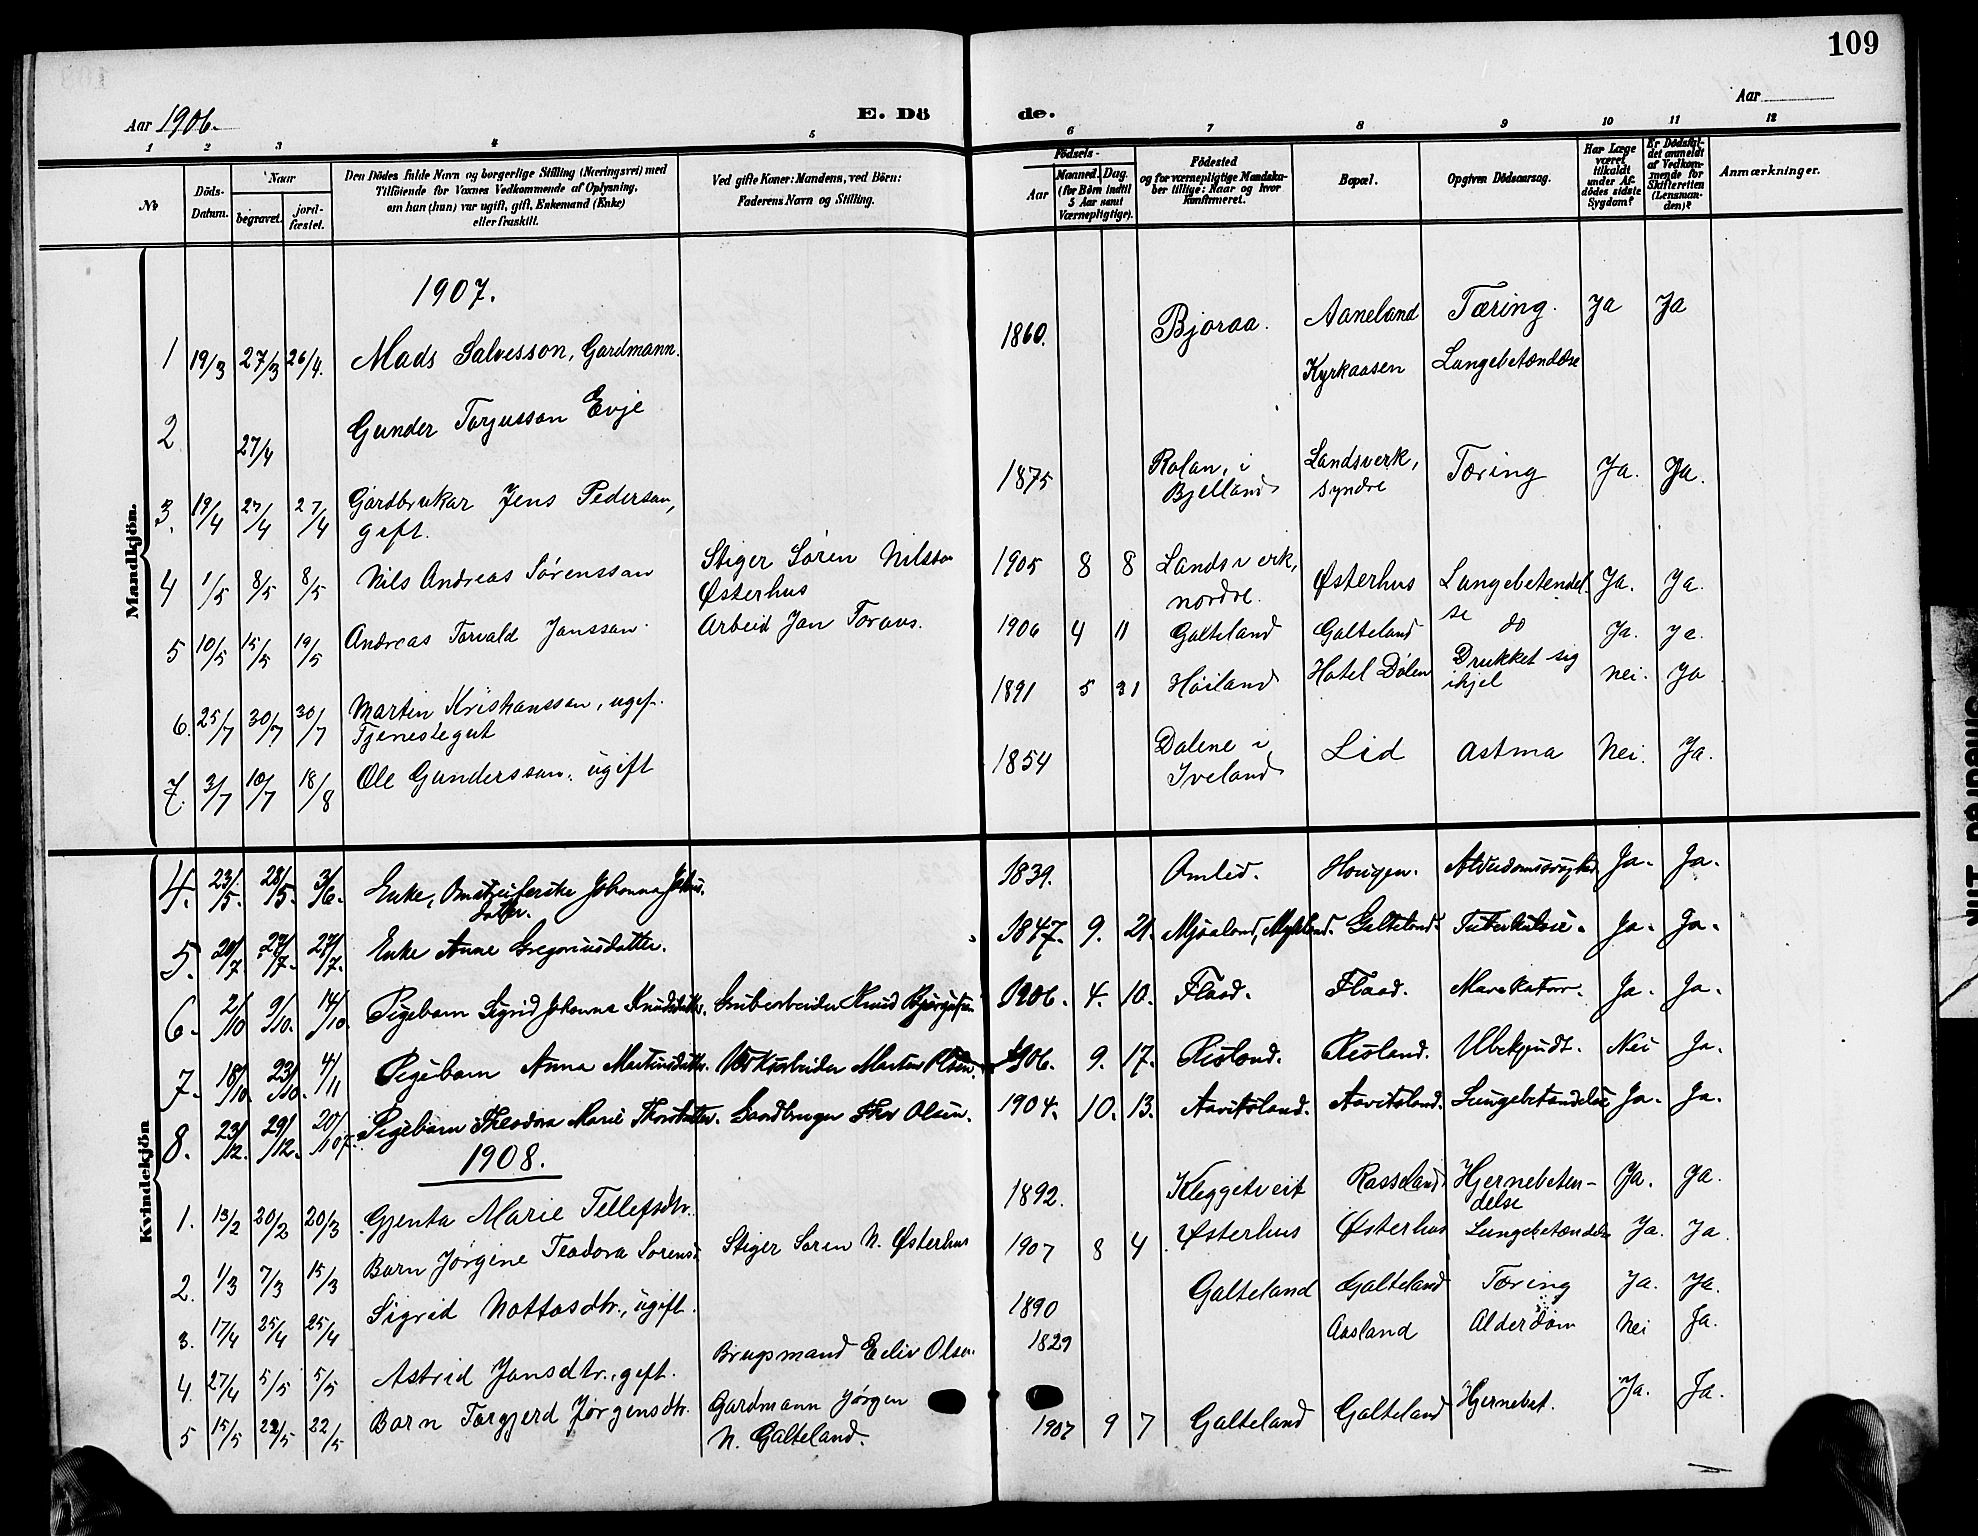 109
Aar 1906.
E. Dö
de.
Aar
1 2 3 4 5 6 7 8 9 10 11 12
No
Döds-Datum.
Naar
begravet.
jord-fæstet.
Den Dödes fulde Navn og borgerlige Stilling (Næringsvei) med
Tilföiende for Voxnes Vedkommende af Oplysning,
om han (hun) var ugift, gift, Enkemand (Enke)
eller fraskilt.
Ved gifte Koner: Mandens, ved Börn:
Faderens Navn og Stilling.
Födsels-
Aar
Maaned. Dag.
(for Börn indtil
5 Aar samt
Værnepligtige).
Födested
og for værnepligtige Mandska-
ber tillige: Naar og hvor
konfirmeret.
Bopæl.
Opgiven Dödsaarsag.
Har Læge
været
tilkaldt
under Af-
dödes sidste
Sygdom?
Er Dödsfal-
det anmeldt
af Vedkom-
mende for
Skifteretten
(Lensman-
den)?
Anmærkninger.
Mandkjön.
1907.
1 19/3 27/3 26/4. Mads Salvesson, Gardmann. 1860. Bjoraa. Aaneland Tæring. Ja Ja
2 27/4 Gunder Torjusson Evje Kyrkaasen Lungebetændelse
3. 19/4 27/4 27/4 Gardbrukar Jens Pederson, gift. 1875 Rolan, i Bjelland Landsverk, syndre Tæring Ja. Ja.
4 1/5 8/5 8/5 Nils Andreas Sørensson Stiger Søren Nilsson Østerhus 1905 8 8 Landsverk, nordre. Østerhus Lungebetendelse Ja. Ja.
5 10/5 15/5 19/5 Andreas Torvald Jansson. Arbeid Jan Foraas. 1906 4 11 Galteland Galteland do Ja. Ja.
6. 25/7 30/7 30/7 Martin Kristiansson, ugift. Tjenestegut 1891 5 31 Høiland Hotel Dølen Drukket sig ihjel nei. Ja
7. 3/7 10/7 18/8 Ole Gundersson, ugift 1854 Dalene i Iveland Lid astma Nei. Ja.
Kvindekjön
4. 23/5. 28/5. 3/6. Enke, Johanna datter. 1839. Omlid. Hougen. Ja. Ja.
5. 20/7. 27/7. 27/7. Enke Anne Gregoriusdatter. 1847. 9. 21. Mjaaland, Mykland. Galteland. Tuberkulose. Ja. Ja.
6. 2/10 9/10. 14/10. Pigebarn Sigrid Johanna Knudsdatter. Grubearbeider Knud 1906. 4. 10. Flaad. Flaad. Mavekatarr. Ja. Ja.
7. 18/10. 23/10. 4/11 Pigebarn Anna Martinsdatter. Verksarbeider Martin Olsen. 1906. 9. 17. Risland. Risland. Ubekjendt. Nei Ja.
8. 23/12. 29/12. 20/1 07. Pigebarn Theodora Marie Thorsdatter. Gardbruger Thor Olsen. 1904. 10. 13. Aavitsland. Aavitsland. Lungebetændelse Ja. Ja.
1908.
1. 13/2 20/2 20/3 Gjenta Marie Tellefsdtr. 1892. Kleggetveit Rosseland Hjernebetendelse Ja. Ja.
2. 1/3 7/3 15/3 Barn Jørgine Teodora Sørensd. Stiger Søren N. Østerhus 1907 8 4 Østerhus Østerhus Lungebetændelse Ja. Ja.
3. 17/4 25/4 25/4 Sigrid Nottosdtr., ugift. 1890 Galteland Galteland Tæring Ja. Ja.
4. 27/4 5/5 5/5 Astrid Jansdtr., gift. Brugsmand Eiliv Olsen. 1829 Aasland Alderdom Nei Ja.
5 15/5 22/5 22/5 Barn Torgjerd Jørgensdtr. Gardmann Jørgen N. Galteland. 1907 9 7 Galteland Galteland Hjernebet. Ja. Ja.